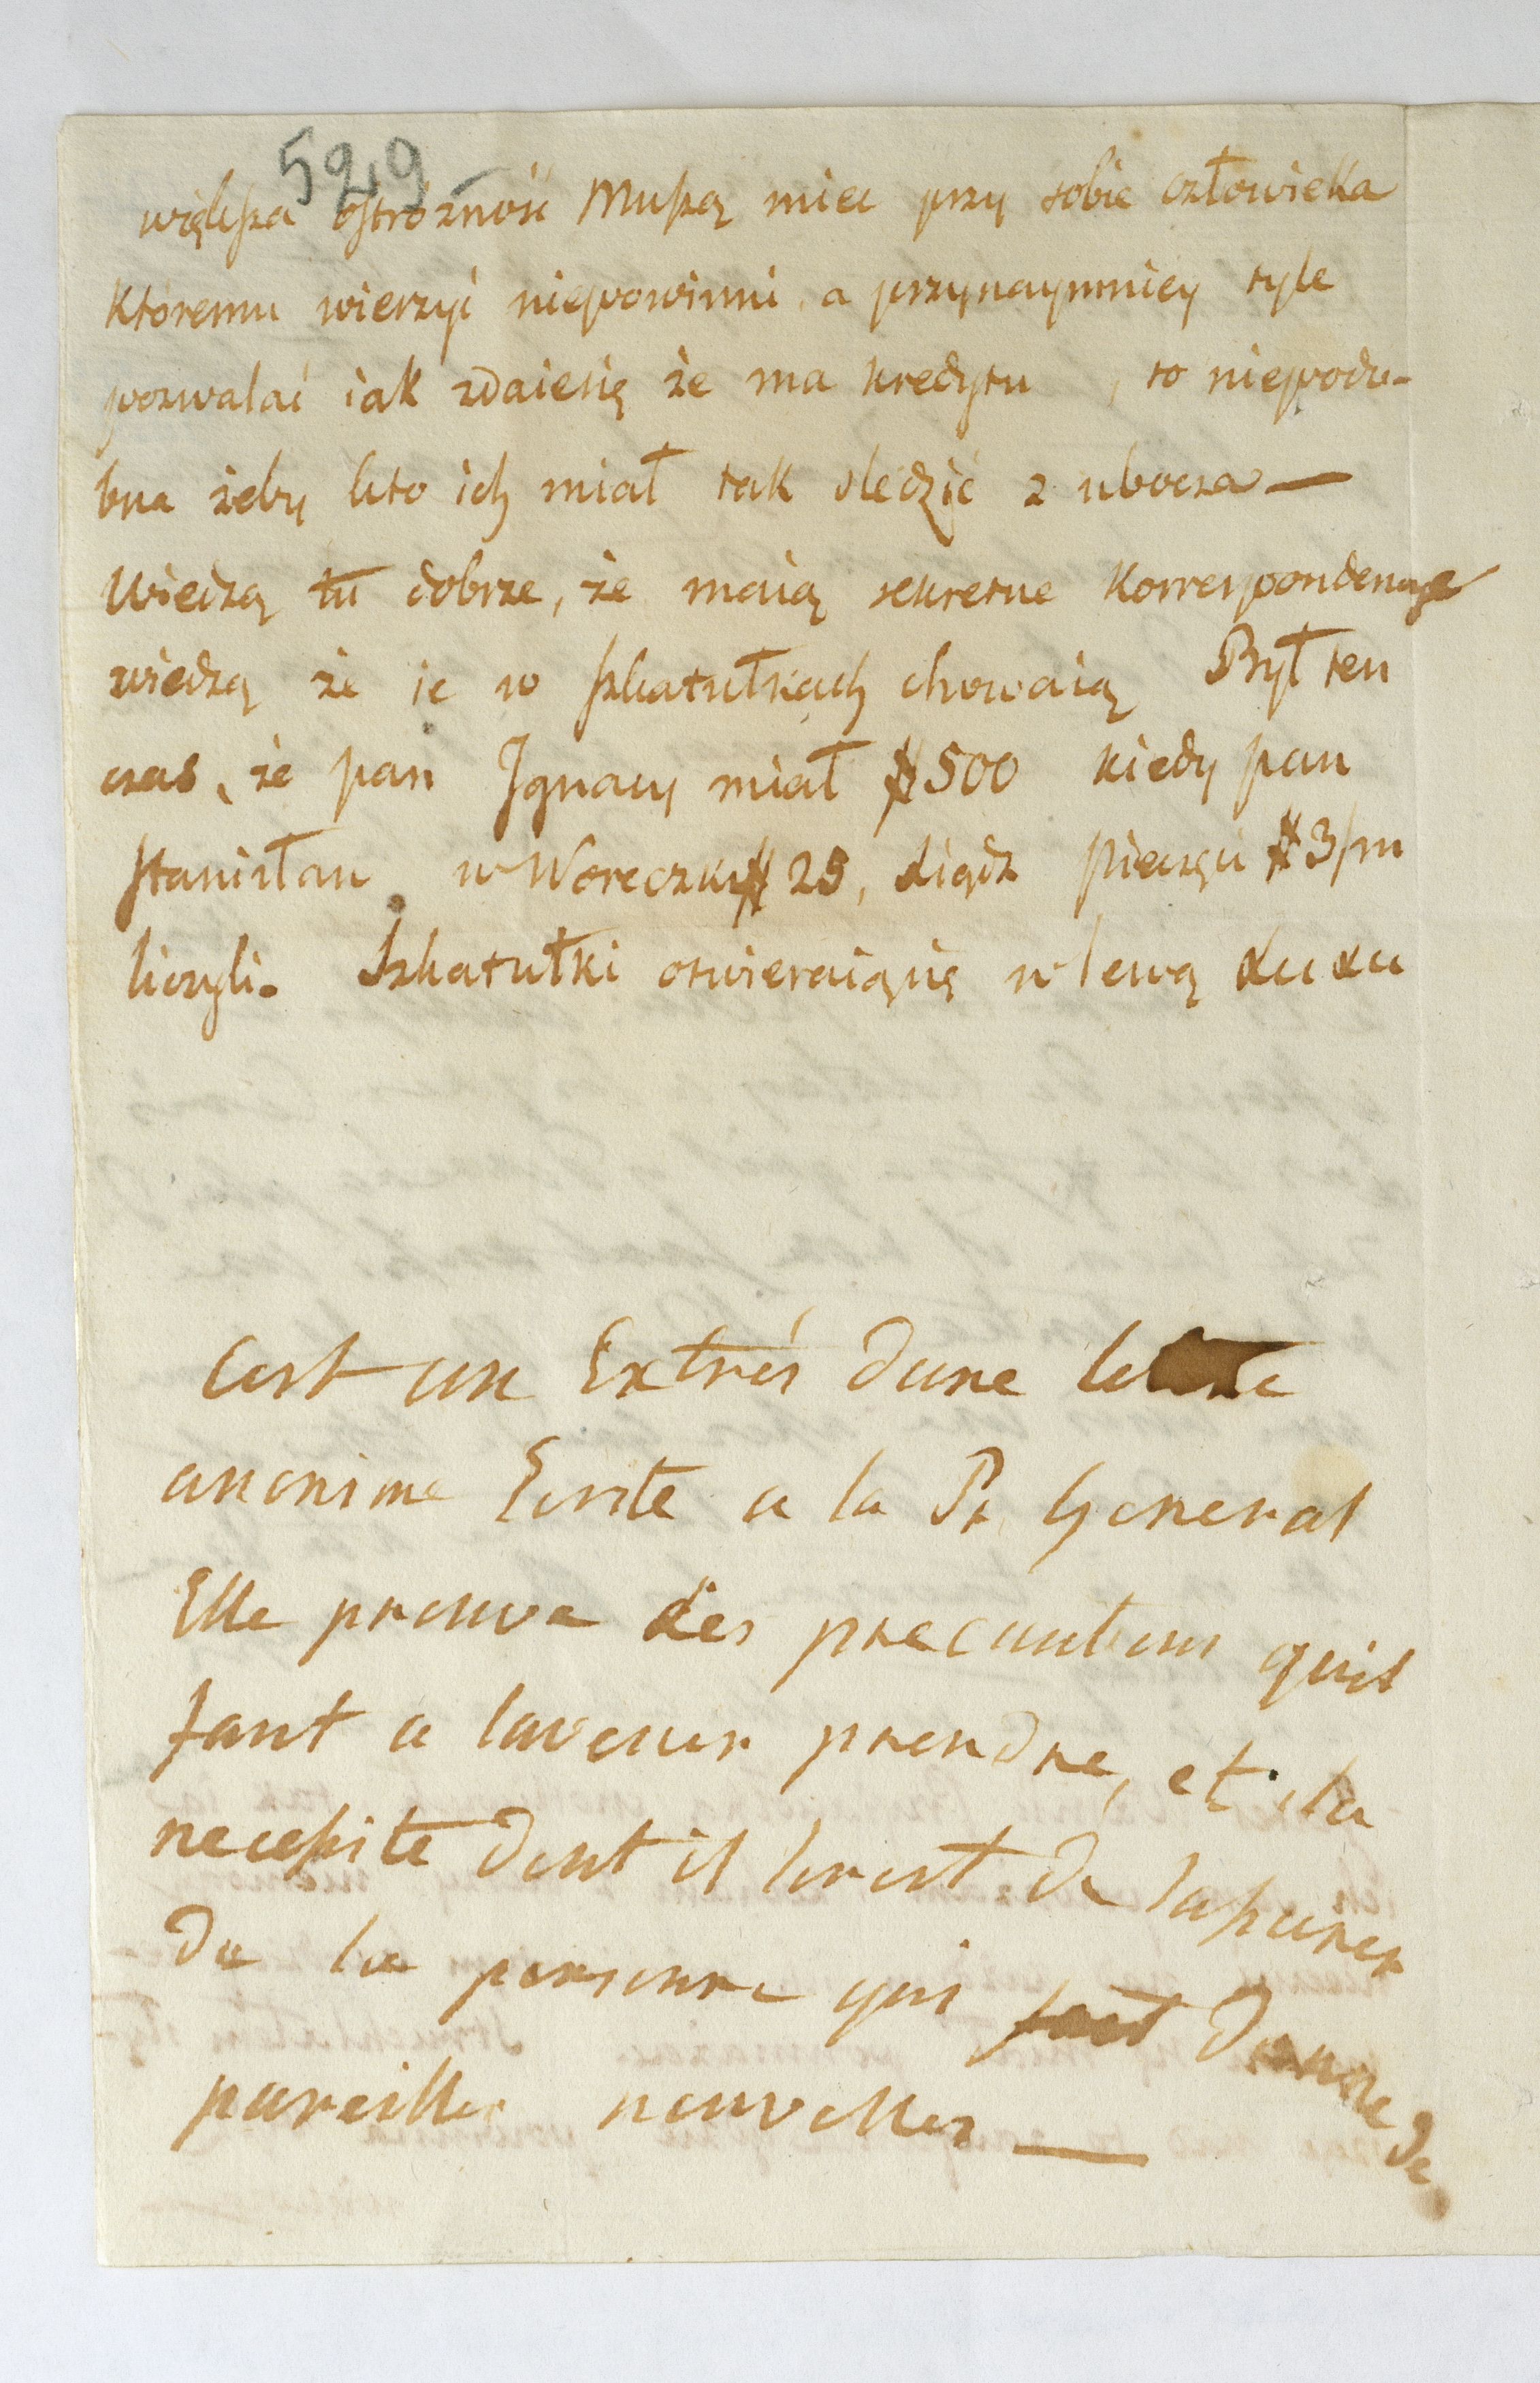 529
więkſza oſtróżność Muſzą miec przy sobie człowieka
Któremu wierzyć niepowinni a przynaymniey tyle
pozwalać iak zdaiesię że ma kredytu , to niepodo-
bna żeby kto ich miał tak sledzić z ubocza —
Wiedzą tu dobrze, że maią sekretne Korrespondencye
wiedzą że ie w ſzkatułkach chowaią Był ten
czas, że pan Jgnacy miał # 500 kiedy pan
Stanisław w Woreczku # 25, Xiądz Pieczęci # 3/m
liczyli. Szkatułki otwieraiąsię w lewą
Cest un Extrés dune lettre
anonime Ecrite a la Pr General
Elle prouve les precautions quil
faut a lavenir prendre, et la
neceſsite dont il serest de saſsurer
de la personne qui fait donner de
pareilles nouvelles —